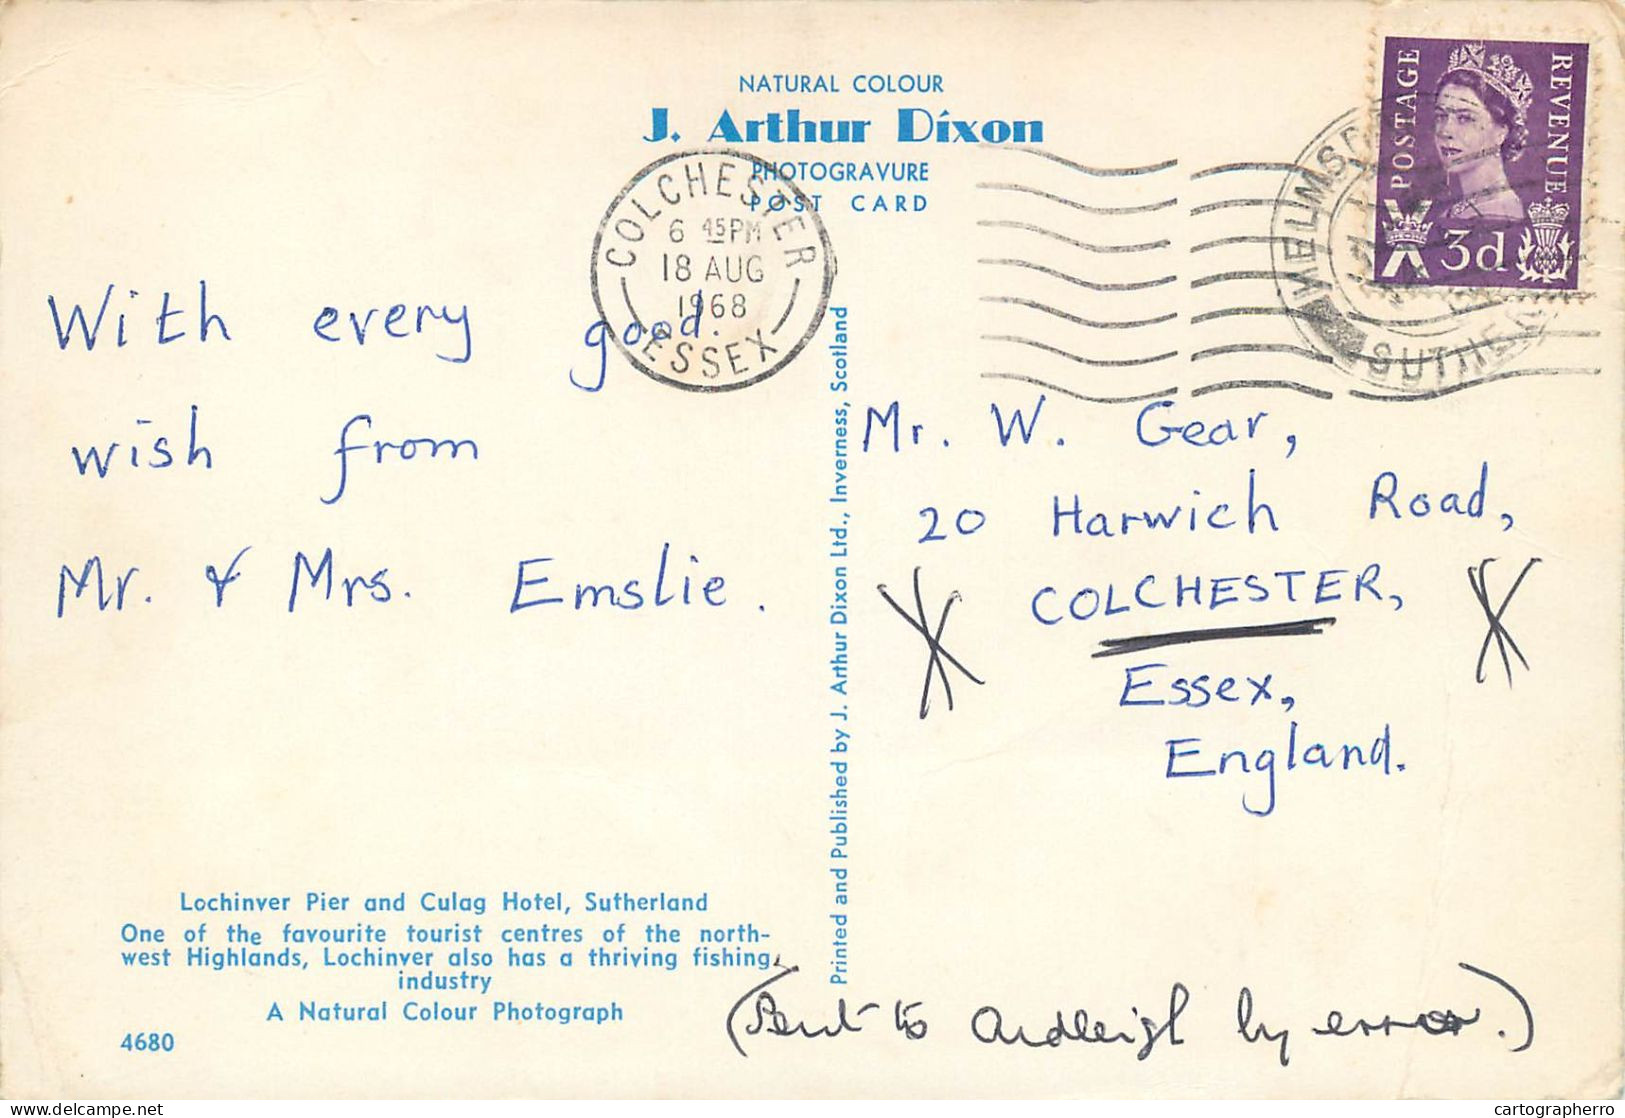 NATURAL COLOUR
J. Arthur Dixon
PHOTOGRAVURE
POST CARD
COLCHESTER
6 45PM
18 AUG
1968
ESSEX
POSTAGE
REVENUE
3d
With every good
wish from
Mr. & Mrs. Emslie.
Printed and Published by J. Arthur Dixon Ltd., Inverness, Scotland
Mr. W. Gear,
20 Harwich Road,
COLCHESTER,
Essex,
England.
Lochinver Pier and Culag Hotel, Sutherland
One of the favourite tourist centres of the north-
west Highlands, Lochinver also has a thriving fishing
industry
A Natural Colour Photograph
4680
(Sent to Ardleigh by error.)
cartographerro